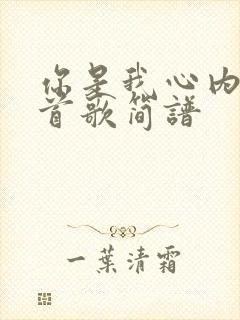 你是我心内
首歌简譜
一葉清霜